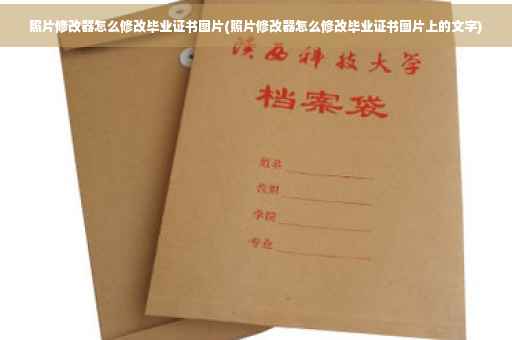 照片修改器怎么修改毕业证书图片(照片修改器怎么修改毕业证书图片上的文字)
陕西科技大学
档案袋
学院
专业